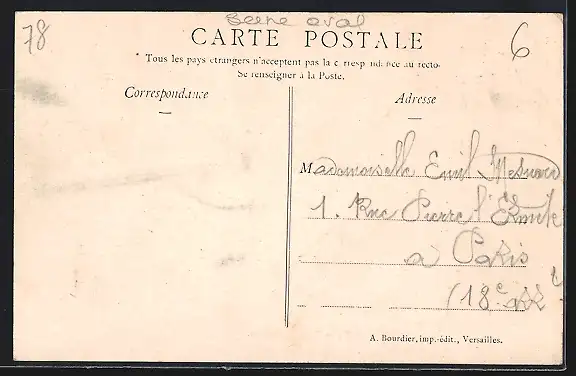 78
6
CARTE POSTALE
* Tous les pays étrangers n'acceptent pas la correspondance au recto.
Se renseigner à la Poste.
Correspondance
Adresse
Mademoiselle Emil
1. Rue Pierre l'Ermite
à Paris
(18e
A. Bourdier, imp.-édit., Versailles.